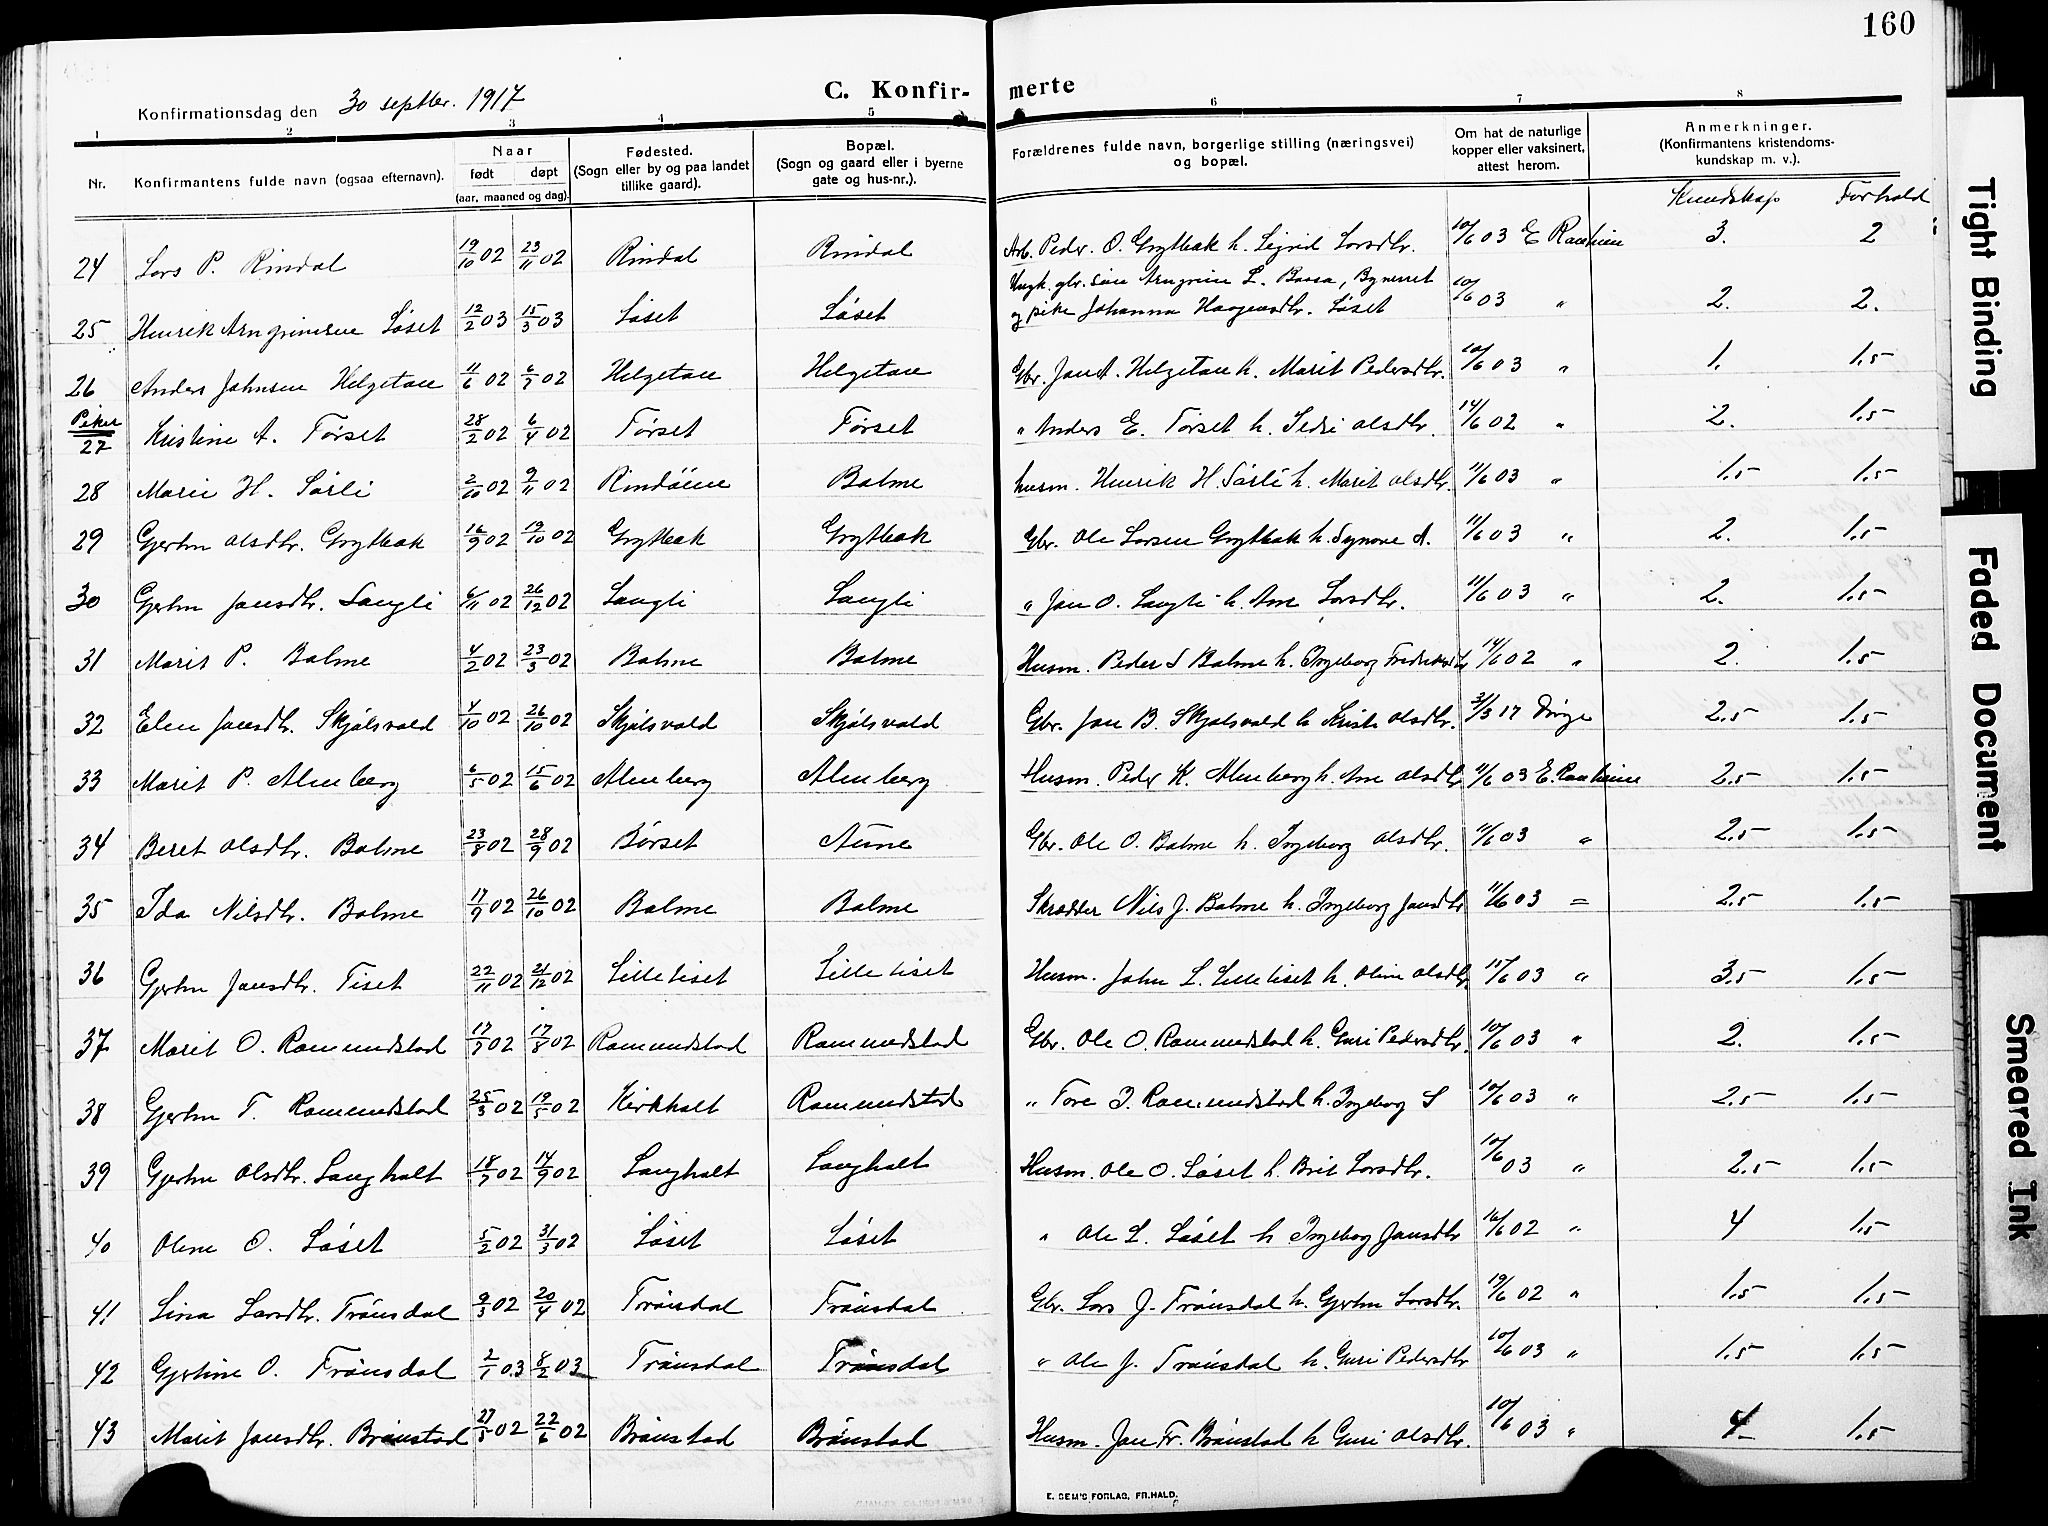 160
Konfirmationsdag den 30 septbr. 1917
C. Konfirmerte
1 2 3 4 5 6 7 8
Nr.
Konfirmantens fulde navn (ogsaa efternavn).
Naar
født døpt
(aar, maaned og dag).
Fødested.
(Sogn eller by og paa landet
tillike gaard).
Bopæl.
(Sogn og gaard eller i byerne
gate og hus-nr.).
Forældrenes fulde navn, borgerlige stilling (næringsvei)
og bopæl.
Om hat de naturlige
kopper eller vaksinert,
attest herom.
Anmerkninger.
(Konfirmantens kristendoms-
kundskap m. v.).
Kundskap Forhold
24 Lars P. Rindal 19/10 02 23/11 02 Rindal Rindal Arb. Peder O. Grytbak h. Sigrid Larsdtr. 10/6 03 E Ranheim 3. 2
25 Henrik Arngrimsen Løset 12/2 03 15/3 03 Løset Løset Ungk. gbr. søn Arngrim L. Baasa, Byneset
og pike Johanna Haagensdtr. Løset 10/6 03 " 2. 2.
26 Anders Johnsen Helgetun 11/6 02 6/7 02 Helgetun Helgetun Gbr. Jon A. Helgetun h. Marit Pedersdtr. 10/6 03 " 1. 1.5
Piker
27 Kristine A. Tørset 28/2 02 6/4 02 Tørset Tørset " Anders E. Tørset h. Sedsi Olsdtr. 14/6 02 " 2. 1.5
28 Marie H. Sørli 2/10 02 9/11 02 Rindøien Bolme husm. Henrik H. Sørli h. Marit Olsdtr. 11/6 03 " 1.5 1.5
29 Gjertru Olsdtr. Grytbak 16/9 02 19/10 02 Grytbak Grytbak Gbr. Ole Larsen Grytbak h. Synove A. 11/6 03 " 2. 1.5
30 Gjertru Jonsdtr. Langli 6/11 02 26/12 02 Langli Langli " Jon O. Langli h. Ane Larsdtr. 11/6 03 " 2. 1.5
31 Marit P. Bolme 4/2 02 23/3 02 Bolme Bolme Husm. Peder S Bolme h. Ingeborg Fredriksdtr 14/6 02 " 2. 1.5
32 Elen Jonsdtr. Skjølsvold 4/10 02 26/10 02 Skjølsvold Skjølsvold Gbr. Jon B. Skjølsvold h Kristi Olsdtr. 31/3 17 2.5 1.5
33 Marit P. Almberg 6/5 02 15/6 02 Almberg Almberg Husm. Peder K. Almberg h. Ane Olsdtr 11/6 03 E. Ranheim 2.5 1.5
34 Beret Olsdtr. Bolme 23/8 02 28/9 02 Børset Aune Gbr. Ole O. Bolme h. Ingeborg Olsdtr. 11/6 03 " 2.5 1.5
35 Ida Nilsdtr. Bolme 17/9 02 26/10 02 Bolme Bolme Skrædder Nils J. Bolme h. Ingeborg Jonsdtr 11/6 03 = 2.5 1.5
36 Gjertru Jonsdtr. Tiset 22/11 02 21/12 02 Lilletiset Lilletiset Husm. John L. Lilletiset h. Oline Olsdtr. 11/6 03 " 3.5 1.5
37 Marit O. Romundstad 17/7 02 17/8 02 Romundstad Romundstad Gbr. Ole O. Romundstad h. Guri Pedersdtr. 10/6 03 " 2. 1.5
38 Gjertru T. Romundstad 25/3 02 19/5 02 Kirkholt Romundstad " Tore J. Romundstad h. Ingeborg S 10/6 03 " 2.5 1.5
39 Gjertru Olsdtr. Langholt 18/7 02 14/9 02 Langholt Langholt Husm. Ole O. Løset h. Brit Larsdtr. 10/6 03 " 2.5 1.5
40 Oline O. Løset 5/2 02 31/3 02 Løset Løset " Ole L. Løset h Ingeborg Jonsdtr 16/6 02 " 4 1.5
41 Lina Larsdtr. Trønsdal 9/3 02 20/4 02 Trønsdal Trønsdal Gbr. Lars J. Trønsdal h. Gjertru Larsdtr. 19/6 02 " 1.5 1.5
42 Gjertine O. Trønsdal 2/1 03 8/2 03 Trønsdal Trønsdal " Ole J. Trønsdal h. Guri Pedersdtr 10/6 03 " 1.5 1.5
43 Marit Jonsdtr. Brønstad 27/5 02 22/6 02 Brønstad Brønstad Husm. Jon Fr. Brønstad h Guri Olsdtr. 10/6 03 " 4 1.5
E. SEM'S FORLAG, FR.HALD.
Tight Binding
Faded Document
Smeared Ink